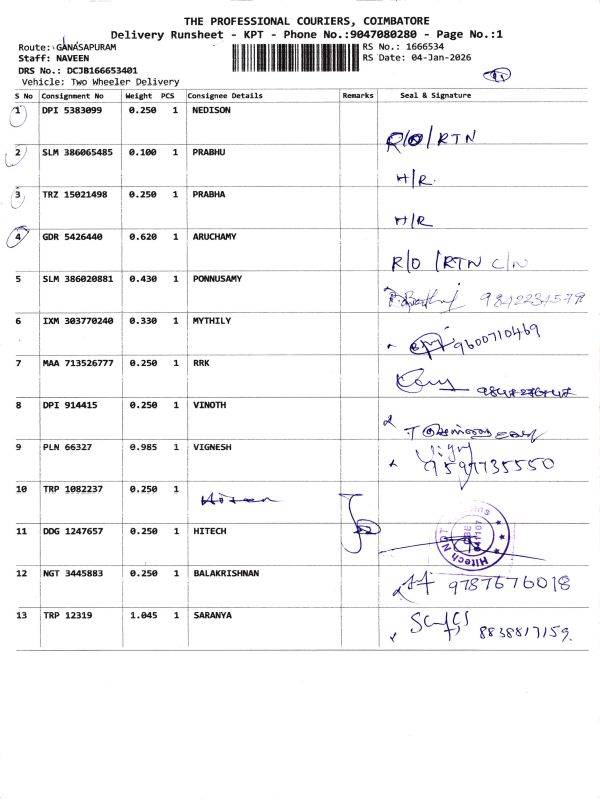 THE PROFESSIONAL COURIERS, COIMBATORE
Delivery Runsheet - KPT - Phone No.:9047080280 - Page No.:1
Route: GANASAPURAM
RS No.: 1666534
Staff: NAVEEN
RS Date: 04-Jan-2026
DRS No.: DCJB166653401
Vehicle: Two Wheeler Delivery
S No Consignment No Weight PCS Consignee Details Remarks Seal & Signature
1 DPI 5383099 0.250 1 NEDISON R/O/RTN
2 SLM 386065485 0.100 1 PRABHU H/R.
3 TRZ 15021498 0.250 1 PRABHA H/R
4 GDR 5426440 0.620 1 ARUCHAMY R/O /RTN C/N
5 SLM 386020881 0.430 1 PONNUSAMY 9842234579
6 IXM 303770240 0.330 1 MYTHILY 9600710469
7 MAA 713526777 0.250 1 RRK
8 DPI 914415 0.250 1 VINOTH
9 PLN 66327 0.985 1 VIGNESH 9597735550
10 TRP 1082237 0.250 1
11 DDG 1247657 0.250 1 HITECH Hitech
12 NGT 3445883 0.250 1 BALAKRISHNAN 9787676018
13 TRP 12319 1.045 1 SARANYA 8838817159.